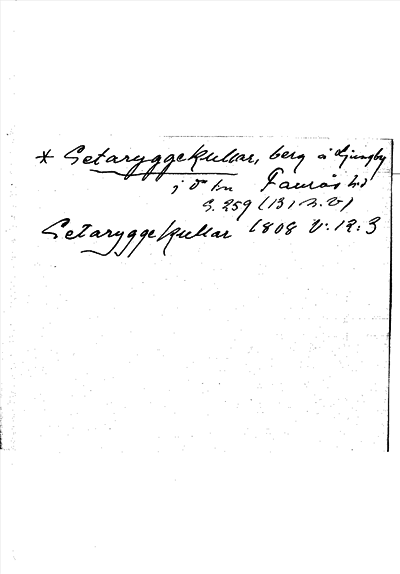 * Getaryggekullar, berg å Ljungby
i d:o sn Faurås hd
S. 259 (B1 n. v)
Getaryggekullar 1808 V: 12: 3